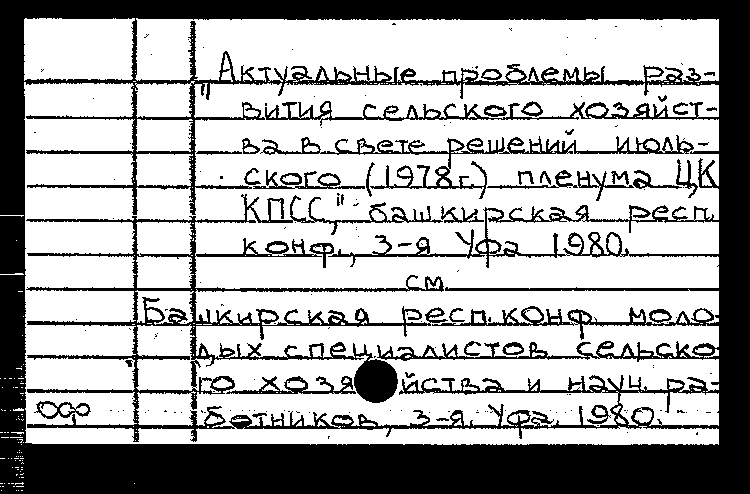 "Актуальные проблемы раз-
вития сельского хозяйст-
ва в свете решений июль-
ского (1978г.) пленума ЦК
КПСС," башкирская респ.
конф., 3-я Уфа 1980.
см
Башкирская респ. конф. моло-
дых специалистов сельско-
го хозяйства и науч. ра-
ботников, 3-я. Уфа. 1980.